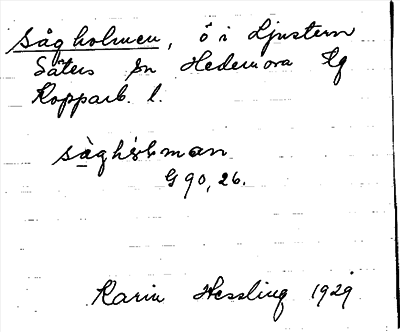 Sågholmen, ö i Ljustern
Säters sn Hedemora tg
Kopparb. l.
sàghɷ́lman
G 90, 26.
Karin Hessling 1929